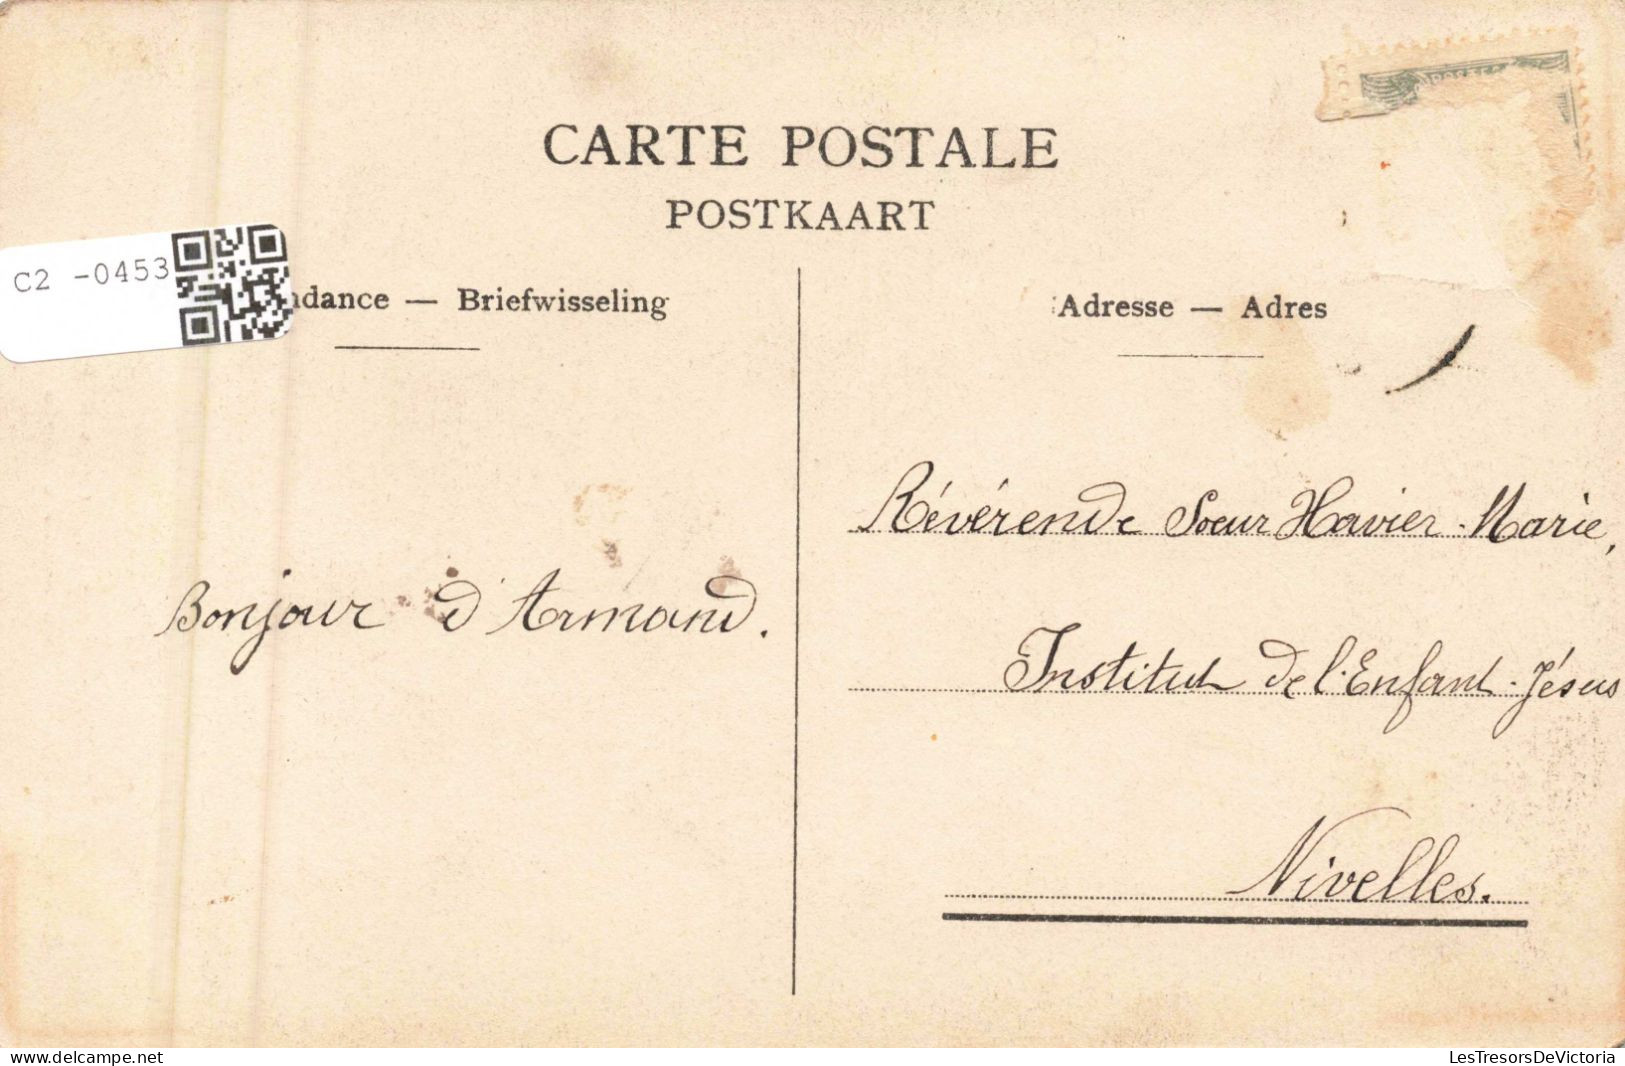 CARTE POSTALE
POSTKAART
C2 -0453
ndance — Briefwisseling
Adresse — Adres
Révérende Soeur Xavier-Marie,
Bonjour d'Armand.
Institut de l'Enfant-Jésus
Nivelles.
delcampe.net
LesTresorsDeVictoria